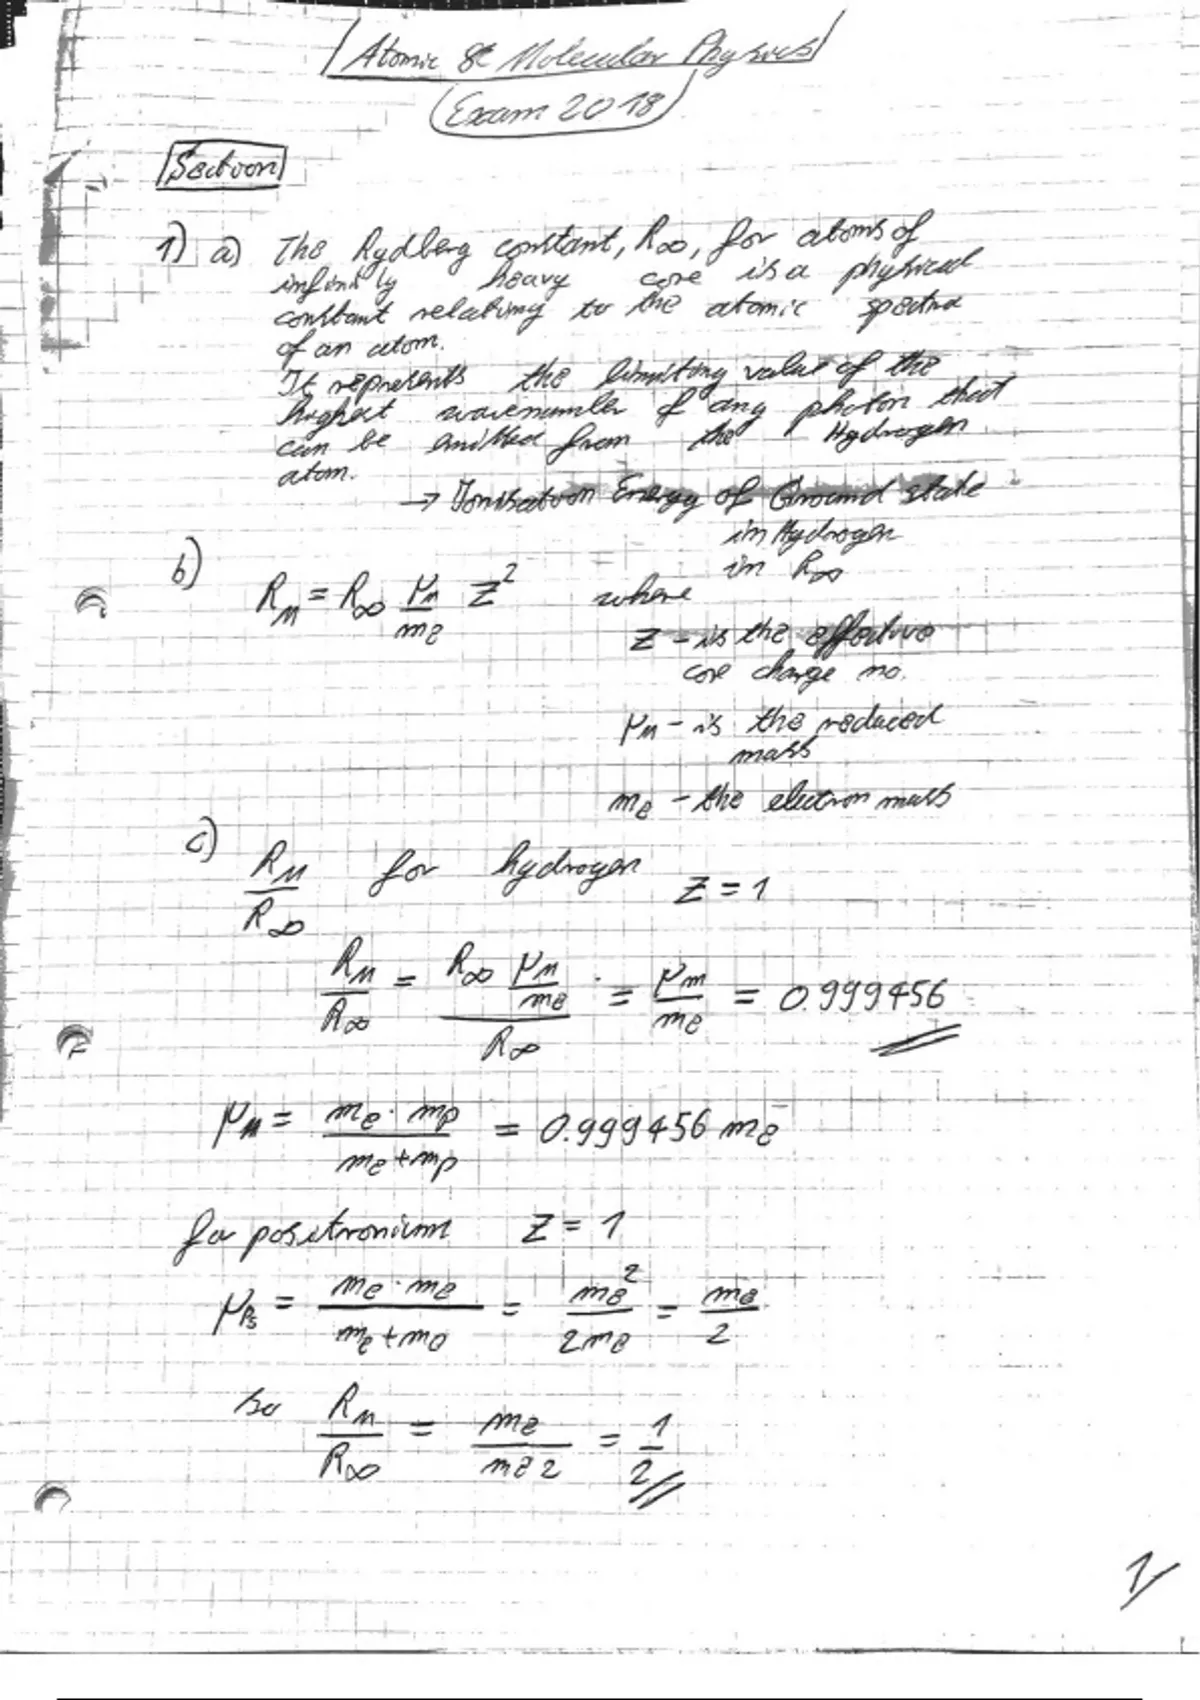 Atomic & Molecular Physics
Exam 2018
Section
1) a) The Rydberg constant, R∞, for atoms of
infinitly heavy core is a physical
constant relating to the atomic spectra
of an atom.
It represents the limiting value of the
highest wavenumber of any photon that
can be emitted from the Hydrogen
atom.
→ Ionisation Energy of Ground state
in Hydrogen
in R∞
b) R_M = R∞ μ_M/m_e Z² where
Z - is the effective
core charge no.
μ_M - is the reduced
mass
m_e - the electron mass
c) R_M/R∞ for hydrogen Z = 1
R_M/R∞ = (R∞ μ_M/m_e)/R∞ = μ_m/m_e = 0.999456
μ_M = (m_e · m_p)/(m_e + m_p) = 0.999456 m_e
for positronium Z = 1
μ_Ps = (m_e · m_e)/(m_e + m_e) = m_e²/2m_e = m_e/2
so R_M/R∞ = m_e/(m_e 2) = 1/2
1